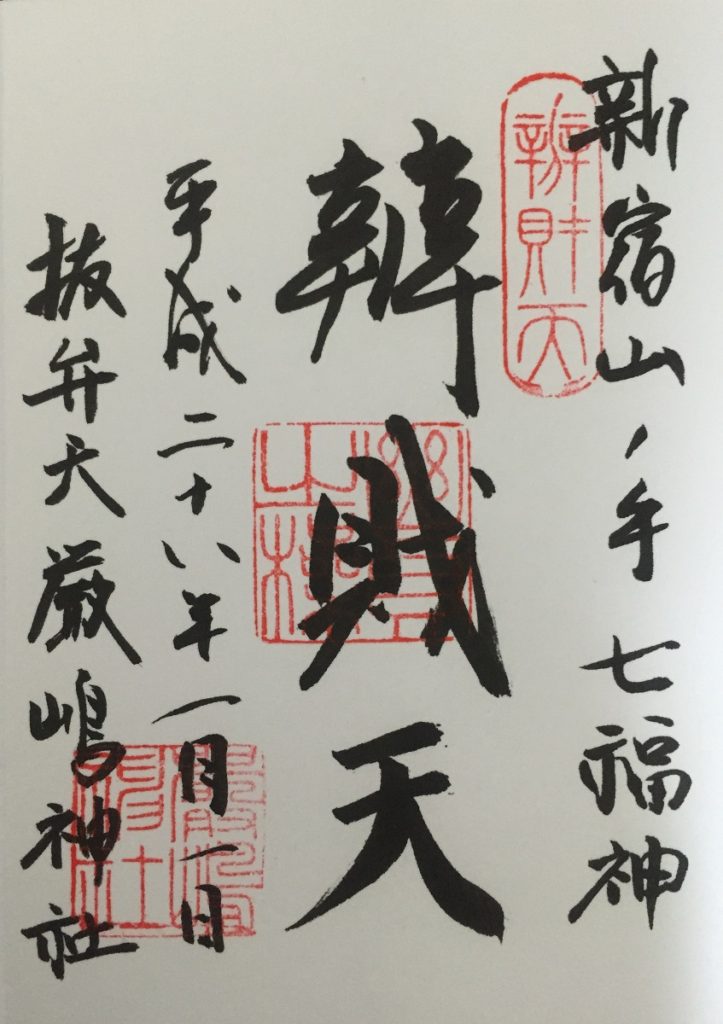 新宿山ノ手七福神
辨財天
辨財天
平成二十八年一月一日
抜弁天厳嶋神社